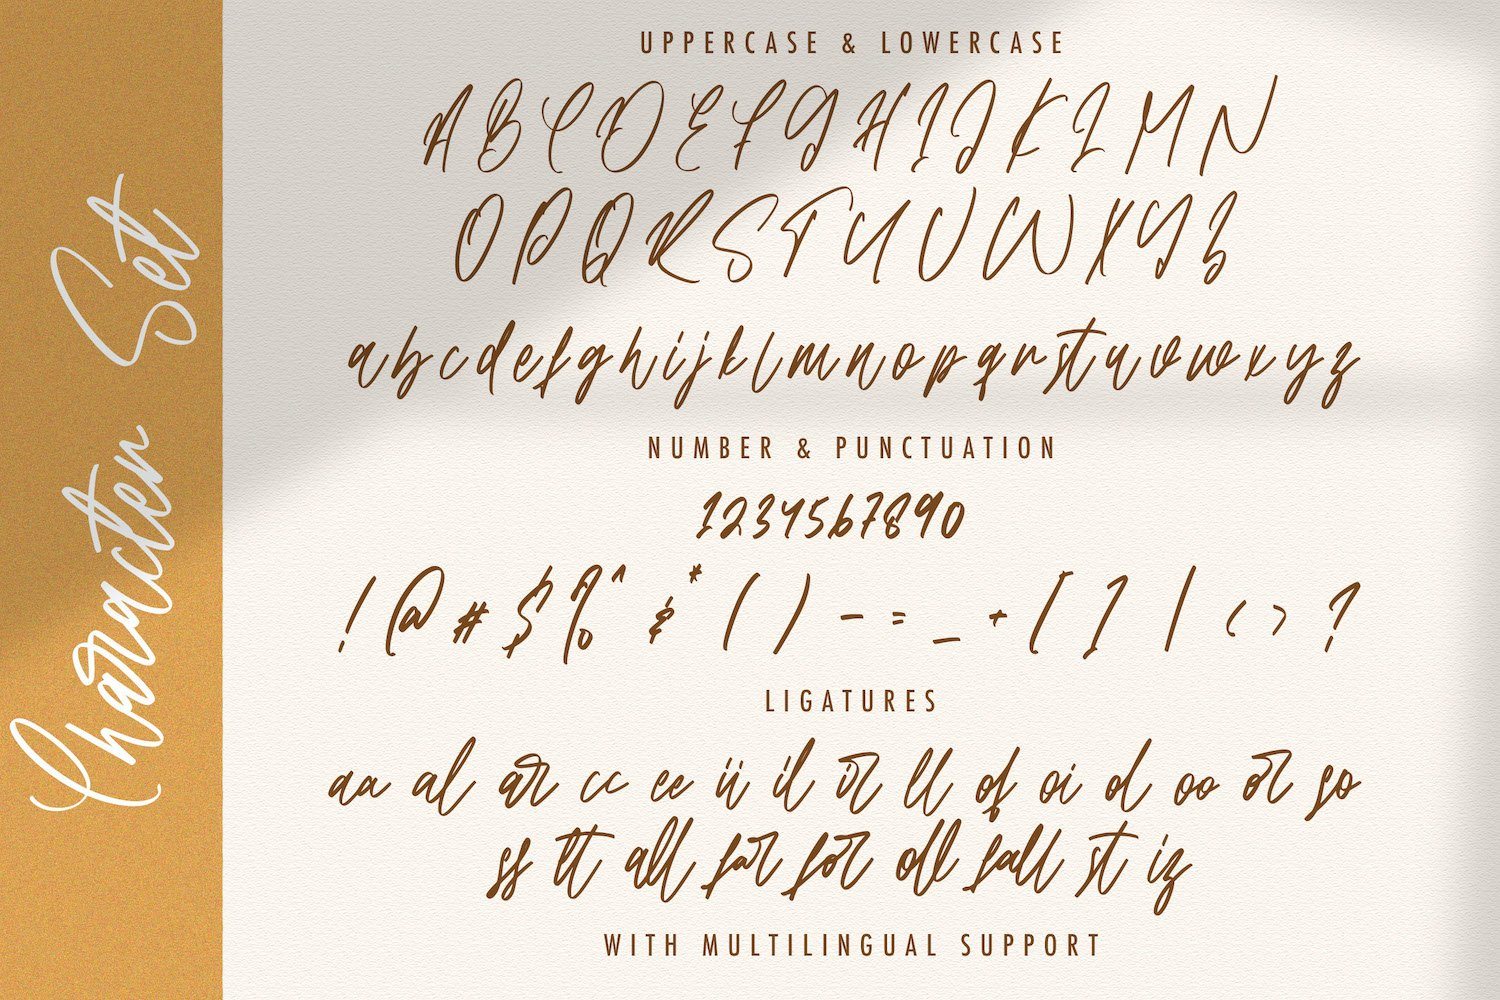 Character Set
UPPERCASE & LOWERCASE
A B C D E F G H I J K L M N
O P Q R S T U V W X Y Z
a b c d e f g h i j k l m n o p q r s t u v w x y z
NUMBER & PUNCTUATION
1234567890
! @ # $ % ^ & * ( ) - = _ + [ ] | < > ?
LIGATURES
aa al ar cc ee ii il ir ll of oi ol oo or so
ss tt all far for oll fall st iz
WITH MULTILINGUAL SUPPORT